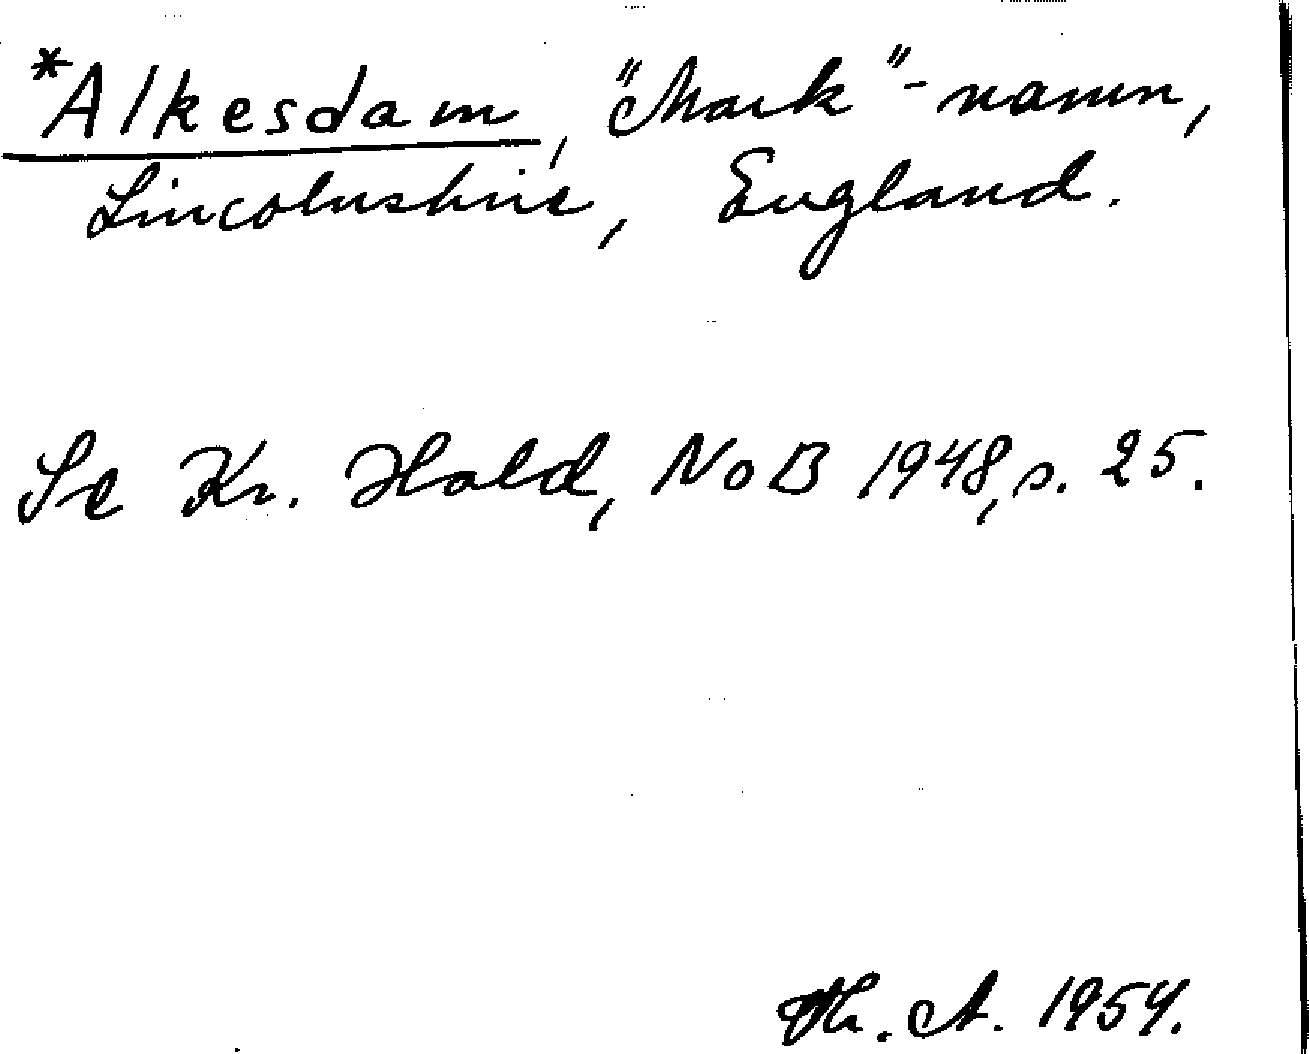 *Alkesdam, "Mark"-namn,
Lincolnshire, England.
Se Kr. Hald, NoB 1948, s. 25.
Th. A. 1954.